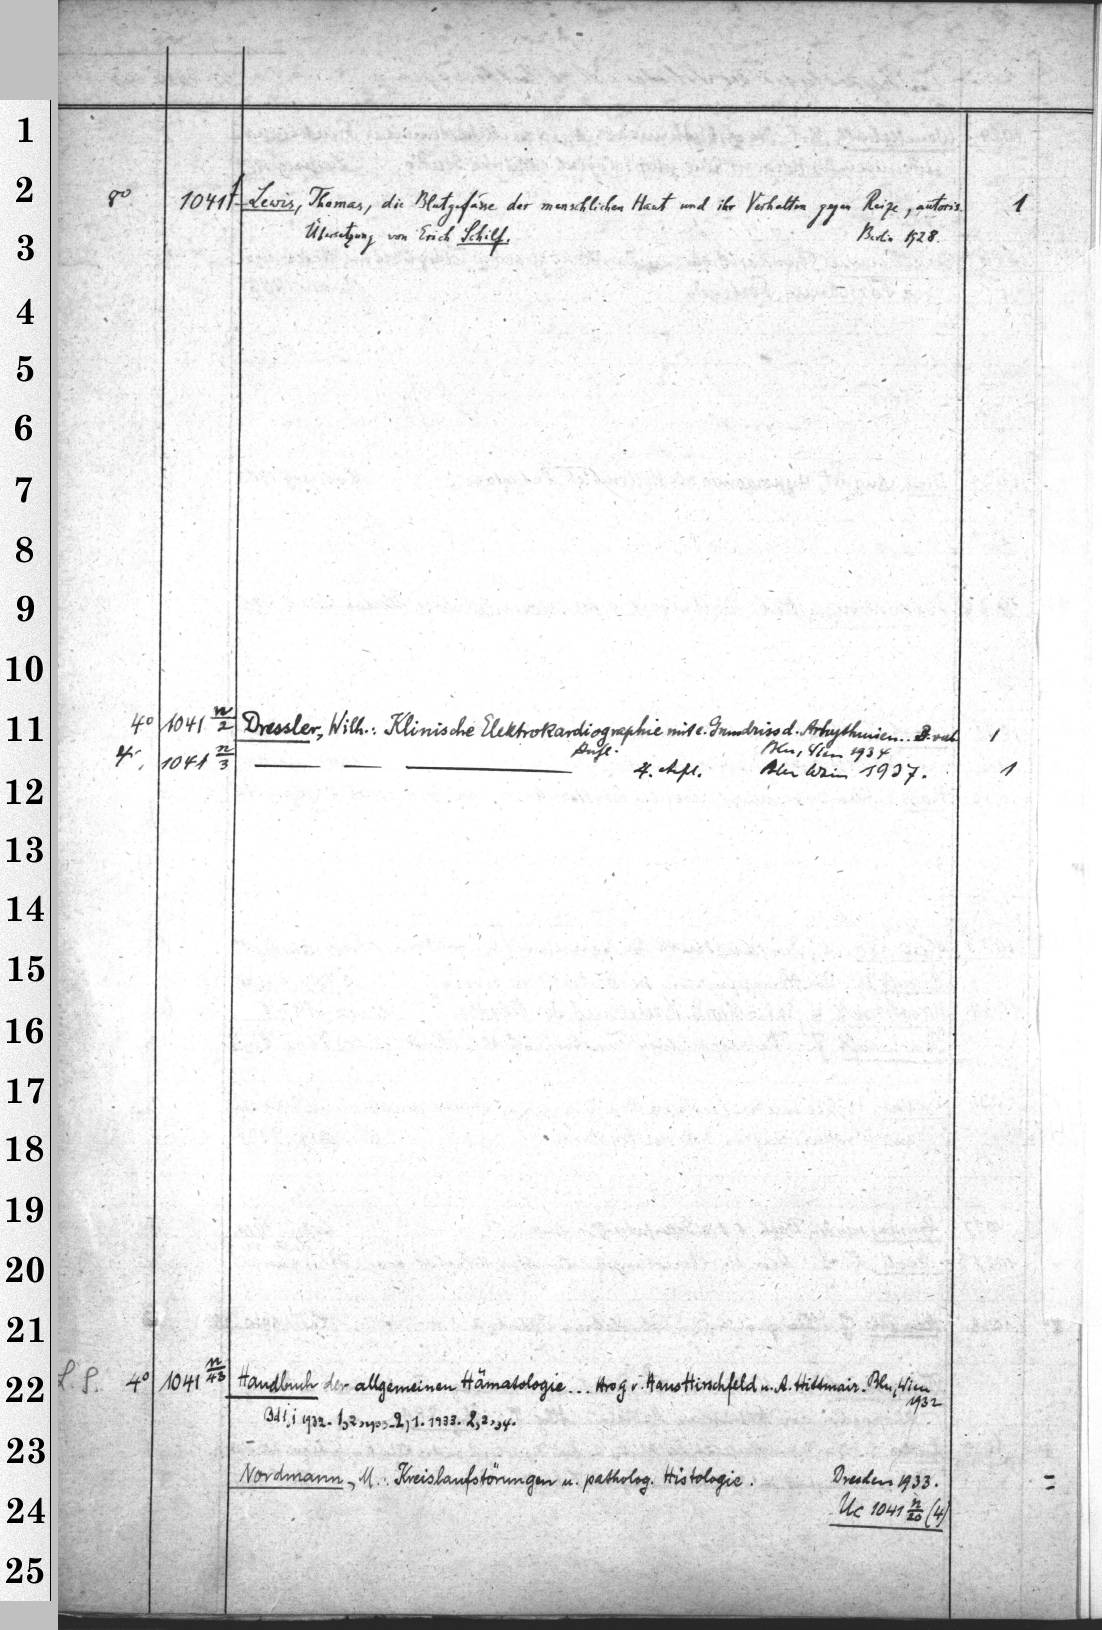 1
2
8° 1041 f Lewis, Thomas, die Blutgefässe der menschlichen Haut und ihr Verhalten gegen Reize, autoris. 1
Übersetzung von Erich Schilf. Berlin 1928.
3
4
5
6
7
8
9
10
11
4° 1041 n/2 Dressler, Wilh.: Klinische Elektrokardiographie mit e. Grundriss d. Arhythmien.. 1
Aufl. Bln, Wien 1934
4°. 1041 n/3 — — — 4. Aufl. Bln Wien 1937. 1
12
13
14
15
16
17
18
19
20
21
22
4° 1041 n/43 Handbuch der allgemeinen Hämatologie... Hrsg v. Hans Hirschfeld u. A. Hittmair. Bln, Wien
1932
Bd 1,1 1932. 1,2, 1933. 2,1. 1933. 2,2, 34.
23
Nordmann, M.: Kreislaufstörungen u. patholog. Histologie. Dresden 1933. =
24
Uc 1041 n/20 (4)
25